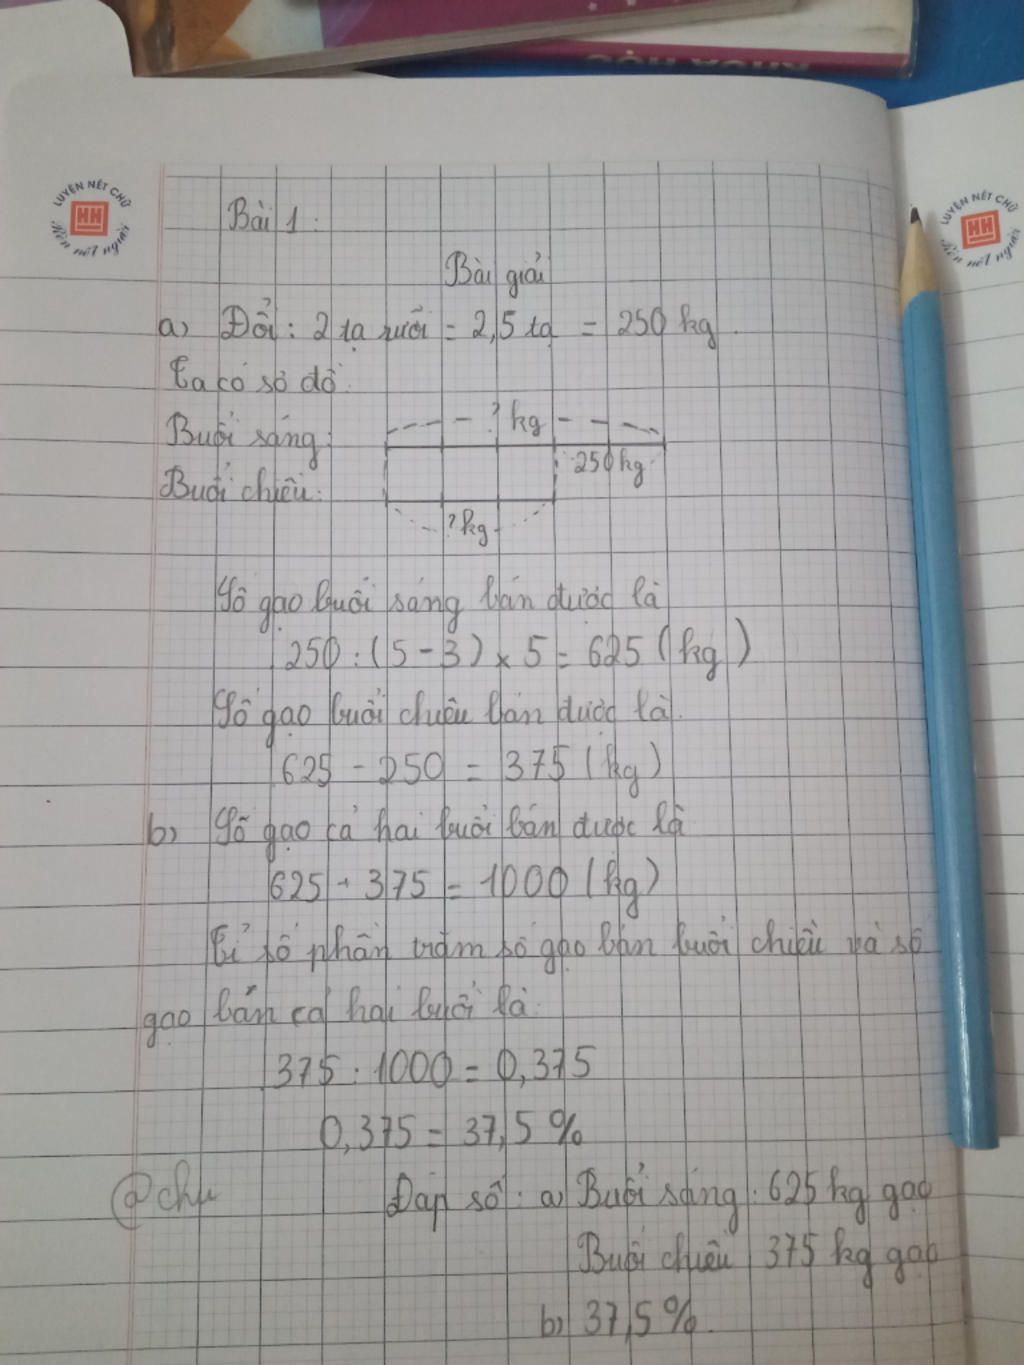 KHOA HỌC
LUYỆN NÉT CHỮ
HH
Rèn nết người
LUYỆN NÉT CHỮ
HH
Rèn nết người
Bài 1:
Bài giải
a) Đổi: 2 tạ rưỡi = 2,5 tạ = 250 kg.
Ta có sơ đồ:
Buổi sáng: ? kg
250 kg
Buổi chiều:
? kg
Số gạo buổi sáng bán được là
250 : (5 - 3) × 5 = 625 (kg)
Số gạo buổi chiều bán được là.
625 - 250 = 375 (kg)
b) Số gạo cả hai buổi bán được là
625 + 375 = 1000 (kg)
Tỉ số phần trăm số gạo bán buổi chiều và số
gạo bán cả hai buổi là:
375 : 1000 = 0,375
0,375 = 37,5 %
@chu
Đáp số: a) Buổi sáng: 625 kg gạo
Buổi chiều 375 kg gạo
b) 37,5%.